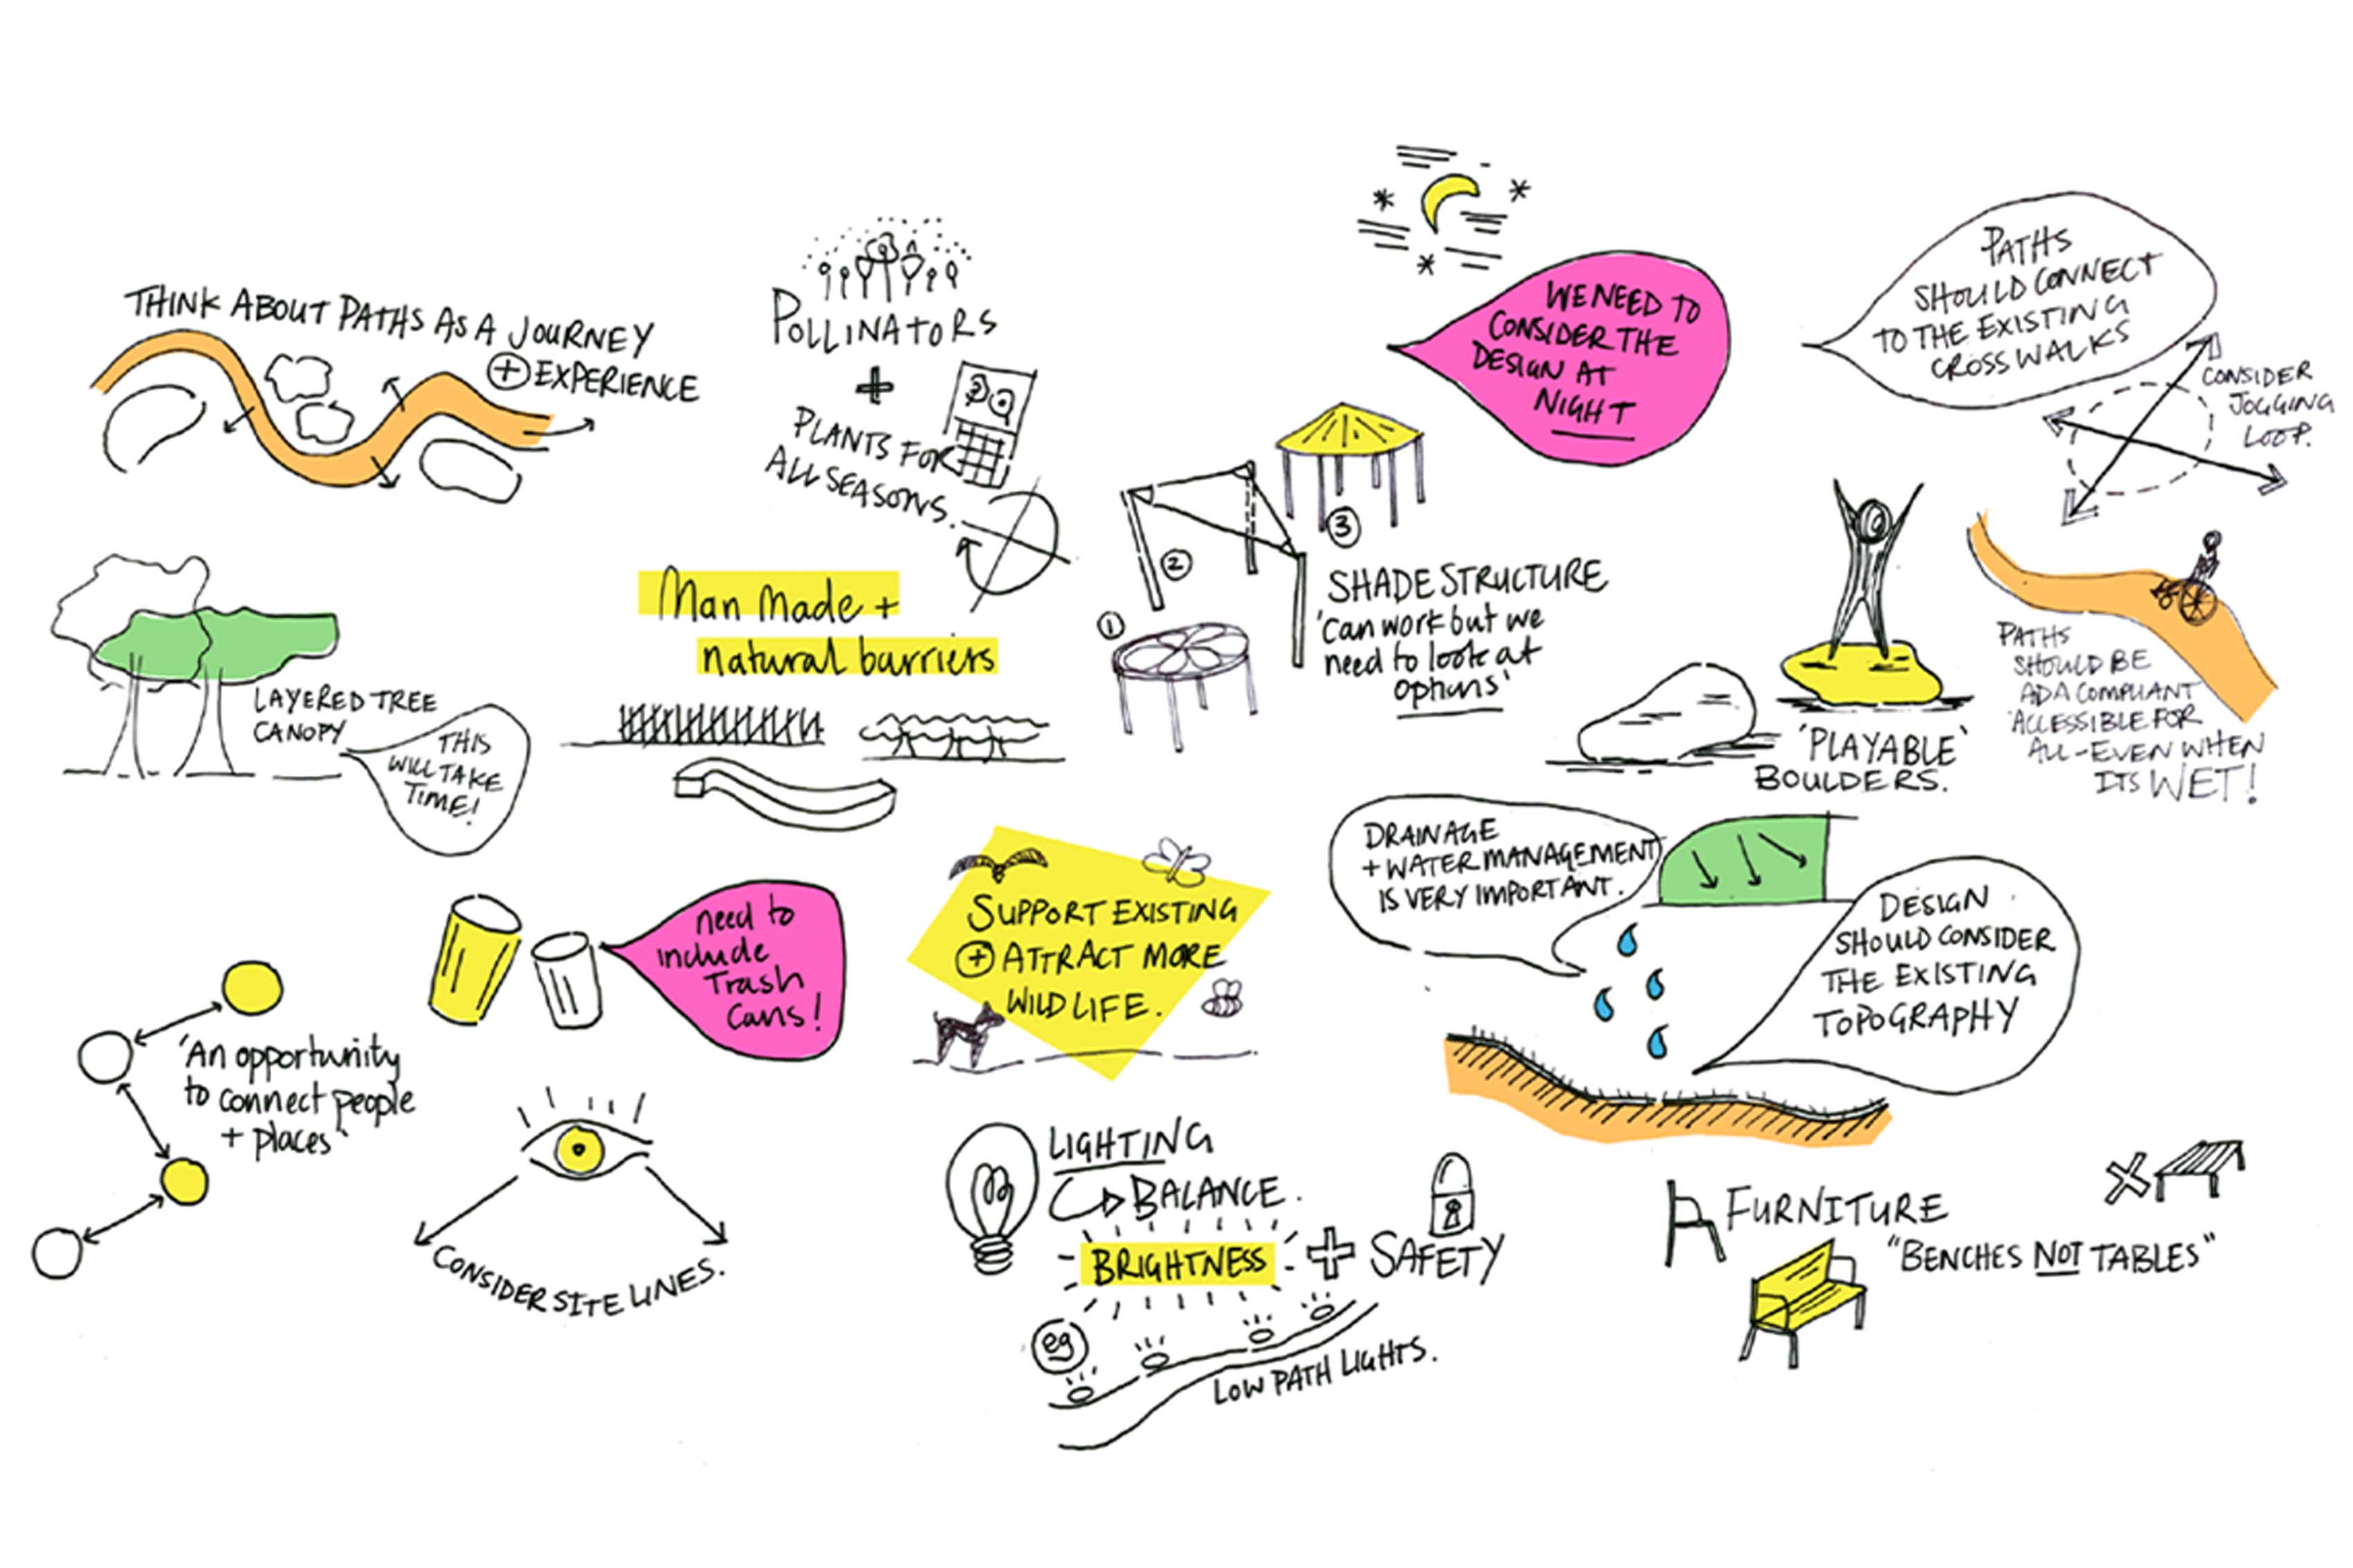 THINK ABOUT PATHS AS A JOURNEY
+ EXPERIENCE
POLLINATORS
+
PLANTS FOR
ALL SEASONS.
WE NEED TO
CONSIDER THE
DESIGN AT
NIGHT
PATHS
SHOULD CONNECT
TO THE EXISTING
CROSSWALKS
CONSIDER
JOGGING
LOOP.
LAYERED TREE
CANOPY
THIS
WILL TAKE
TIME!
Man Made +
natural barriers
1
2
3
SHADE STRUCTURE
'Can work but we
need to look at
options'
'PLAYABLE'
BOULDERS.
PATHS
SHOULD BE
ADA COMPLIANT
'ACCESSIBLE FOR
ALL - EVEN WHEN
ITS WET!
need to
include
Trash
Cans!
SUPPORT EXISTING
+ ATTRACT MORE
WILDLIFE.
DRAINAGE
+ WATER MANAGEMENT
IS VERY IMPORTANT.
DESIGN
SHOULD CONSIDER
THE EXISTING
TOPOGRAPHY
'An opportunity
to connect people
+ places'
CONSIDER SITE LINES.
LIGHTING
BALANCE.
BRIGHTNESS + SAFETY
eg
LOW PATH LIGHTS.
FURNITURE
"BENCHES NOT TABLES"